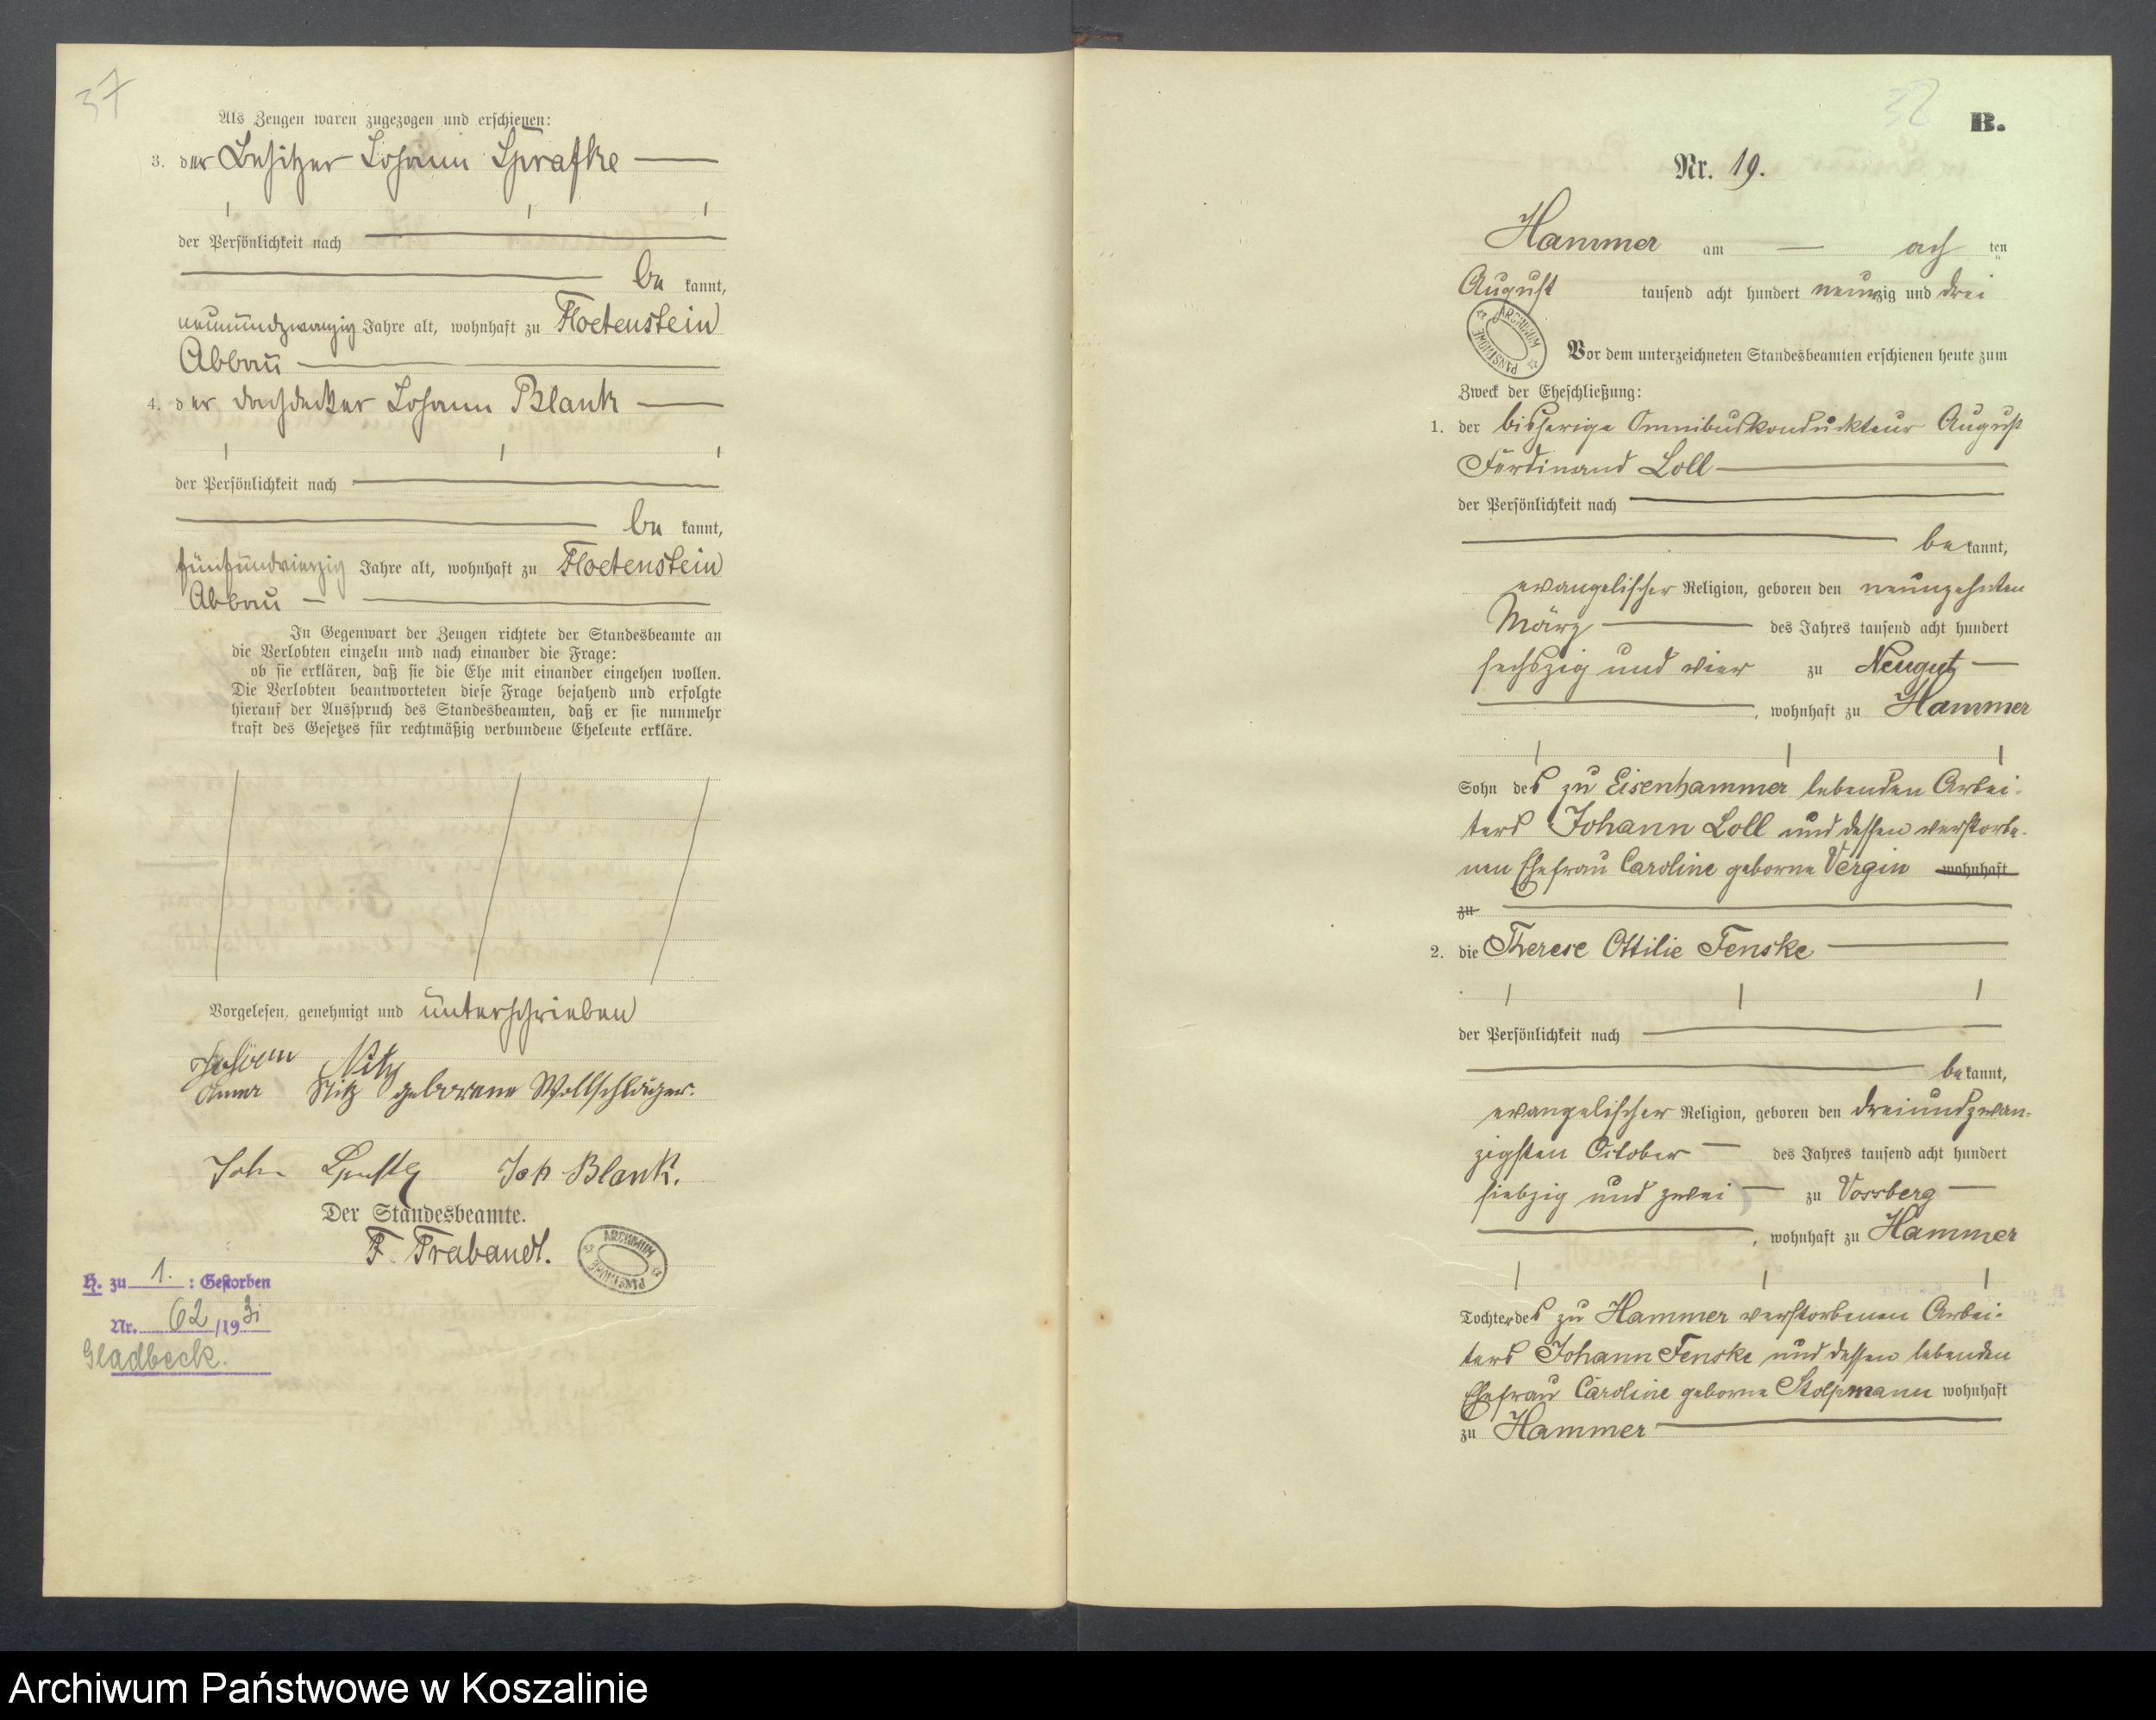 37
Als Zeugen waren zugezogen und erschienen:
3. der Besitzer Johann Sprafke
der Persönlichkeit nach
be kannt,
neunundzwanzig Jahre alt, wohnhaft zu Floetenstein
Abbau
4. der Dachdecker Johann Blank
der Persönlichkeit nach
be kannt,
fünfundvierzig Jahre alt, wohnhaft zu Floetenstein
Abbau
In Gegenwart der Zeugen richtete der Standesbeamte an
die Verlobten einzeln und nach einander die Frage:
ob sie erklären, daß sie die Ehe mit einander eingehen wollen.
Die Verlobten beantworteten diese Frage bejahend und erfolgte
hierauf der Ausspruch des Standesbeamten, daß er sie nunmehr
kraft des Gesetzes für rechtmäßig verbundene Eheleute erkläre.
Vorgelesen, genehmigt und unterschrieben
Johann Nitz
Anna Nitz geborene Wollschläger.
Joh Blank.
Der Standesbeamte.
F. Trabandt.
ARCHIWUM PAŃSTWOWE
H. zu 1. : Gestorben
Nr. 62 /19 31
Gladbeck.
32
B.
Nr. 19.
Hammer am — ach ten
August tausend acht hundert neunzig und drei
ARCHIWUM PAŃSTWOWE
Vor dem unterzeichneten Standesbeamten erschienen heute zum
Zweck der Eheschließung:
1. der bisherige Omnibuskondukteur August
Ferdinand Loll
der Persönlichkeit nach
be kannt,
evangelischer Religion, geboren den neunzehnten
März des Jahres tausend acht hundert
sechszig und vier zu Neugut
, wohnhaft zu Hammer
Sohn des zu Eisenhammer lebenden Arbei-
ters Johann Loll und dessen verstorbe-
nen Ehefrau Caroline geborne Vergin wohnhaft
zu
2. die Therese Ottilie Fenske
der Persönlichkeit nach
be kannt,
evangelischer Religion, geboren den dreiundzwan-
zigsten October des Jahres tausend acht hundert
siebzig und zwei zu Vossberg
, wohnhaft zu Hammer
Tochter des zu Hammer verstorbenen Arbei-
ters Johann Fenske und dessen lebenden
Ehefrau Caroline geborne Stolpmann wohnhaft
zu Hammer
Archiwum Państwowe w Koszalinie